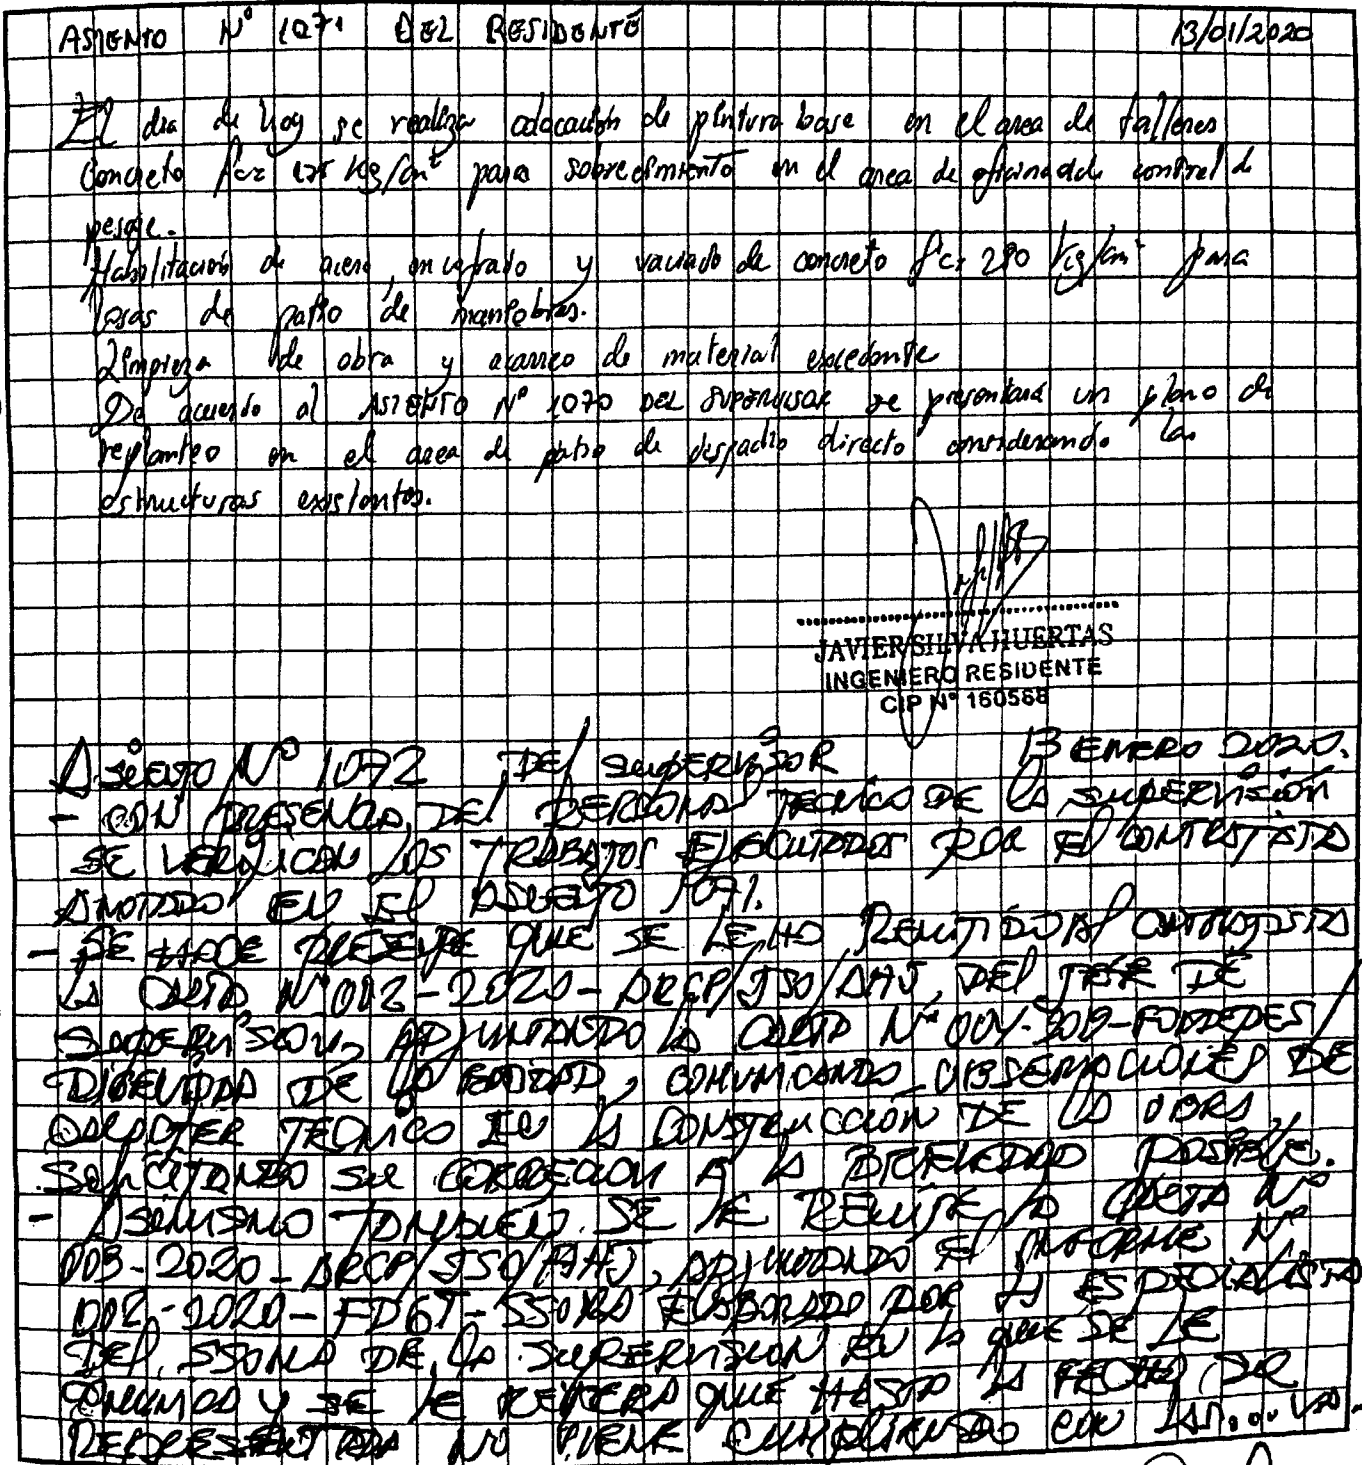 ASIENTO Nº 1071 DEL RESIDENTE 13/01/2020
El dia de hoy se realiza colocación de pintura base en el area de talleres
Concreto f'c= 175 Kg/cm² para sobrecimiento en el area de oficina de control de
pesaje.-
Habilitación de acero, encofrado y vaciado de concreto f'c= 280 Kg/cm² para
losas de patio de maniobras.
Limpieza de obra y acarreo de material excedente
De acuerdo al ASIENTO Nº 1070 DEL SUPERVISOR se presentará un plano de
replanteo en el area de patio de despacho directo considerando las
estructuras existentes.
JAVIER SILVA HUERTAS
INGENIERO RESIDENTE
CIP Nº 160568
Asiento Nº 1072 DEL SUPERVISOR 13 ENERO 2020.
- CON PRESENCIA DEL PERSONAL TECNICO DE LA SUPERVISIÓN
SE VERIFICAN LOS TRABAJOS EJECUTADOS POR EL CONTRATISTA
ANOTADO EN EL ASIENTO 1071.
- SE HACE PRESENTE QUE SE LE HA REMITIDO AL CONTRATISTA
LA CARTA Nº 002-2020-ARCP/JSO/AHJ, DEL JEFE DE
SUPERVISION, ADJUNTANDO LA CARTA Nº 004-2019-FONDEPES/
DIGENIPAA DE LA ENTIDAD, COMUNICANDO OBSERVACIONES DE
CARACTER TECNICO EN LA CONSTRUCCIÓN DE LA OBRA,
SOLICITANDO SU CORRECION A LA BREVEDAD POSIBLE.
- ASIMISMO TAMBIEN SE LE REMITE LA CARTA Nº
003-2020-ARCP/JSO/AHJ, ADJUNTANDO EL INFORME Nº
002-2020-FDGT-SSOMA ELABORADO POR LA ESPECIALISTA
DEL SSOMA DE LA SUPERVISION EN LA QUE SE LE
COMUNICA Y SE LE REITERA QUE HASTA LA FECHA SU
REPRESENTADA NO VIENE CUMPLIENDO CON